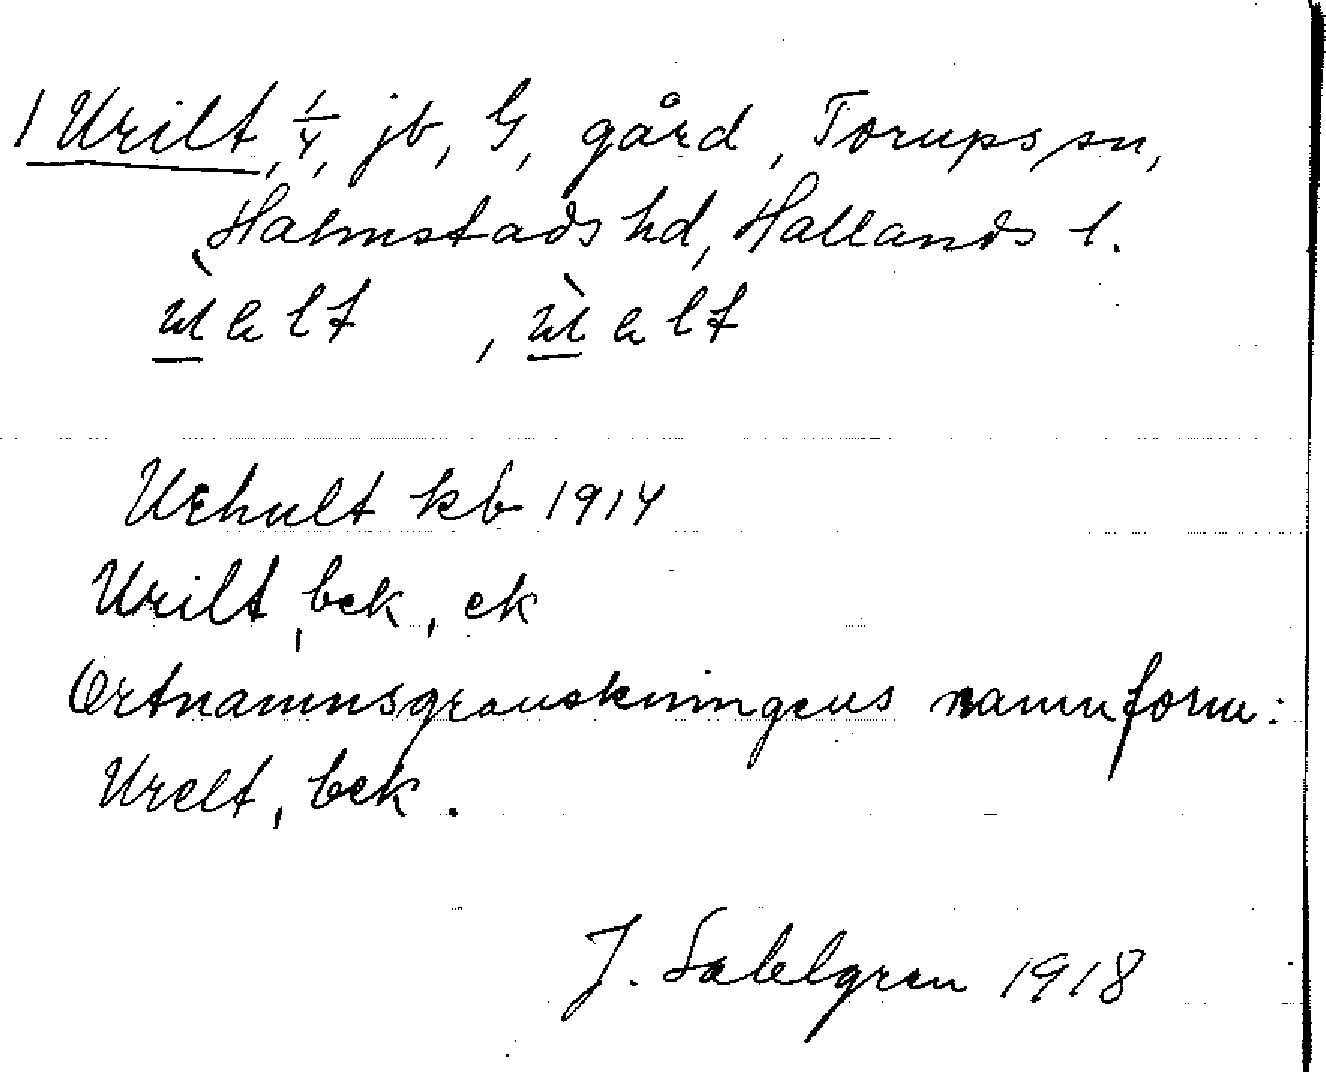 1 Urilt, 1/4, jb, G, gård, Torups sn,
Halmstads hd, Hallands l.
Urhult kb 1914
Urilt, bck, ck
Ortnamnsgranskningens namnform:
Urelt, bck.
J. Sahlgren 1918